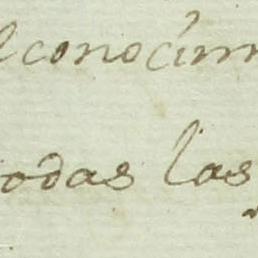 conocim
odas las